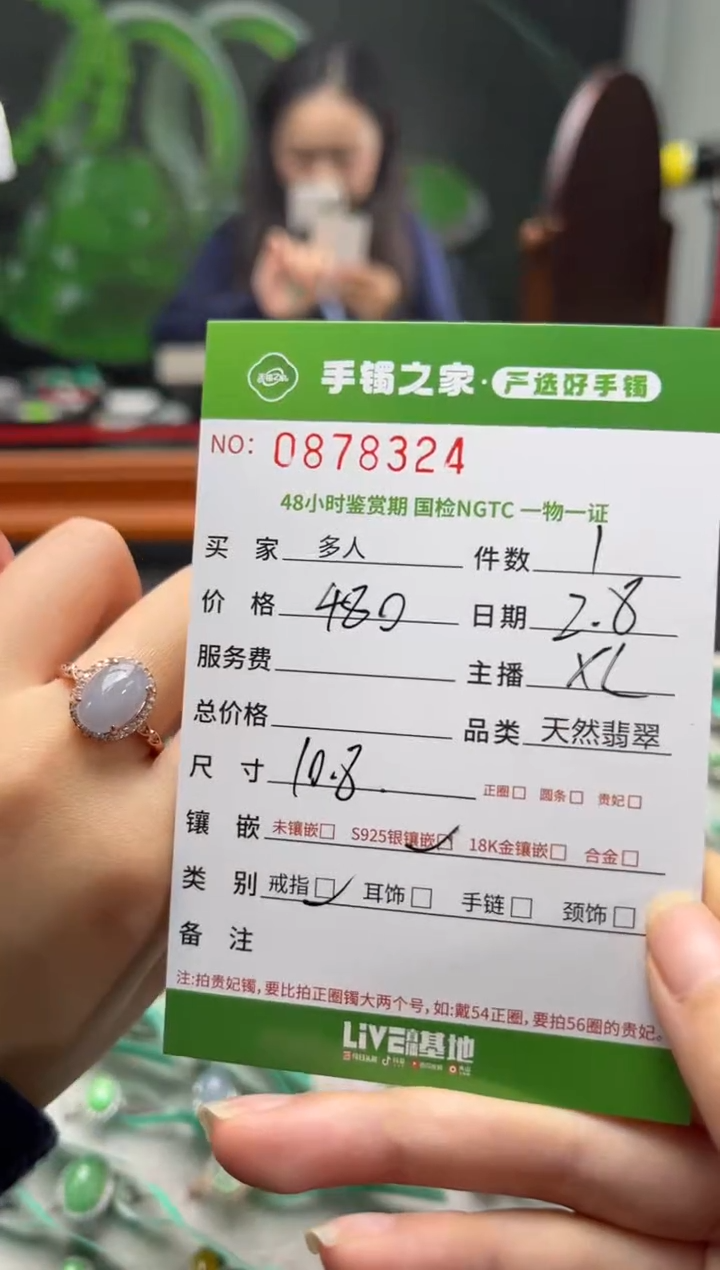 手镯之家·严选好手镯
NO: 0878324
48小时鉴赏期 国检NGTC 一物一证
买家 多人 件数 1
价格 480 日期 2.8
服务费 主播 XL
总价格 品类 天然翡翠
尺寸 10.8 正圈□ 圆条□ 贵妃□
镶嵌 未镶嵌□ S925银镶嵌□ 18K金镶嵌□ 合金□
类别 戒指□ 耳饰□ 手链□ 颈饰□
备注
注:拍贵妃镯,要比拍正圈镯大两个号,如:戴54正圈,要拍56圈的贵妃。
LIVE直播基地